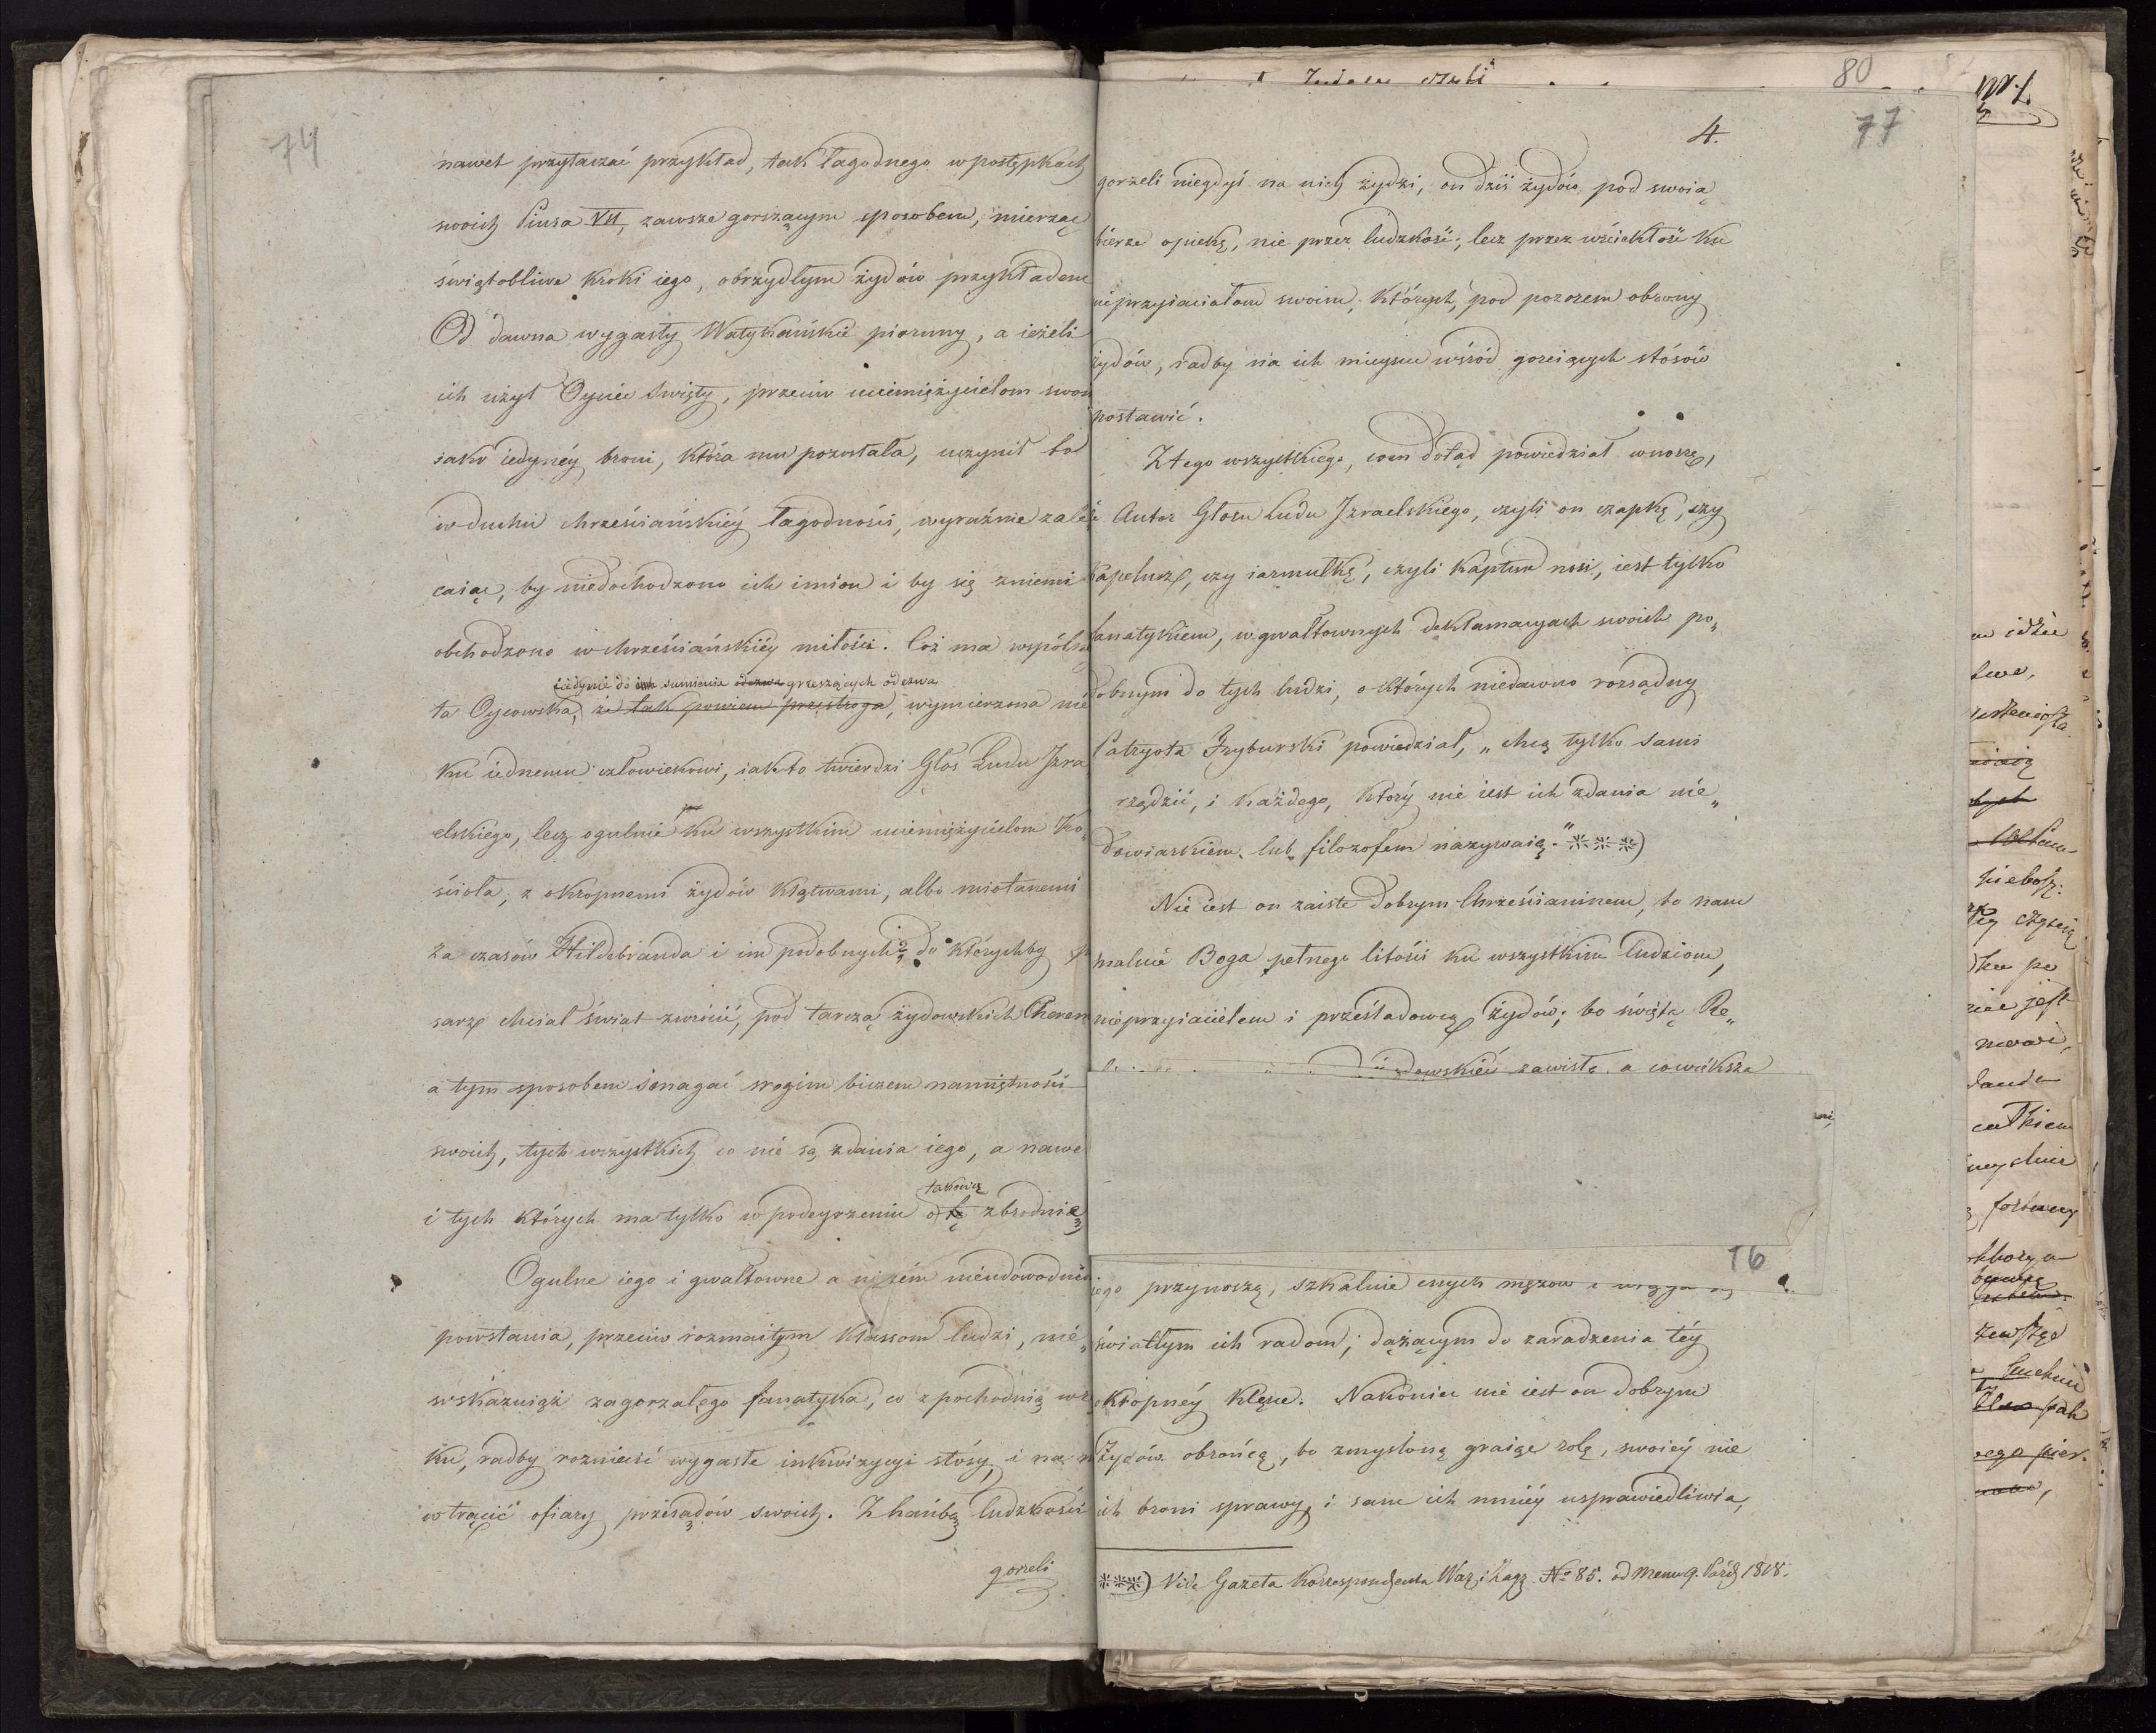 74
nawet przytaczać przykład, tak łagodnego w postępkach
swoich Piusa VII, zawsze gorszącym sposobem, mierzac
świątobliwe kroki iego, obrzydłym żydów przykładem
Od dawna wygasły Watykańskie pioruny, a ieżeli
ich użył Oyciec Swięty, przeciw uciemiężycielom swoi
iako iedynéy broni, która mu pozostała, uczynił to
w duchu chrześciańskiéy łagodności, wyraźnie zale
caiąc, by niedochodzono ich imion i by się z niemi
obchodzono w chrześciańskiéy miłości. Coż ma wspóln
iedynie do sumienia odezwa grzeszących odezwa
ta Oycowska, że tak powiem przestroga, wymierzona nie
ku iednemu człowiekowi, iak to twierdzi Głos Ludu Izra
elskiego, lecz ogulnie ku wszystkim uciemiężycielom Ko„
ścioła, z okropnemi żydów klątwami, albo miotanemi
za czasów Hildebranda i im podobnych, do którychby
sarz chciał świat zwrócić, pod tarczą żydowskich Cherem
a tym sposobem smagać srogim biczem namiętności
swoich, tych wszystkich co nie są zdania iego, a nawe
takowią
i tych których ma tylko w podeyrzeniu o tę zbrodnią
Ogulne iego i gwałtowne a niczém nieudowodnio
powstania, przeciw rozmaitym klassom ludzi, nié„
wskazuiąż zagorzałego fanatyka, co z pochodnią w rę
ku, radby rozniecić wygasłe inkwizycyi stósy, i na n
wtrącić ofiary przesądów swoich. Z hańbą ludzkości
gorzeli
80
4.
77
gorzeli niegdyś na nich żydzi, on dziś żydów pod swoią
bierze opiekę, nie przez ludzkość, lecz przez wściekłość ku
nieprzyiaciołom swoim, których, pod pozorem obrony
żydów, radby na ich mieyscu wśród goreiących stósów
postawić.
Z tego wszystkiego, com dotąd powiedział wnoszę,
iż Autor Głosu Ludu Izraelskiego, czyli on czapkę, czy
kapelusz, czy iarmułkę, czyli kaptur nosi, iest tylko
fanatykiem, w gwałtownych deklamacyach swoich po„
dobnym do tych ludzi, o których niedawno rozsądny
Patryota Fryburski powiedział, „chcą tylko sami
rządzić, i każdego, który nie iest ich zdania nie„
dowiarkiem lub filozofem nazywaią." ***)
Nie iest on zaiste dobrym Chrześcianinem, bo nam
maluie Boga pełnego litości ku wszystkim ludziom,
nieprzyiacielem i prześladowcą żydów; bo świętą Re„
zawisłe, a cowiększa
76
iego przynoszą, szkaluie cnych mężow i
światłym ich radom, dążącym do zaradzenia téy
okropnéy klęsce. Nakoniec nie iest on dobrym
Żydów obrońcą, bo zmysloną graiąc rolę, swoiéy nie
ich broni sprawy, i sam ich mniéy usprawiedliwia,
***) Vide Gazeta Korrespondenta War. i Zagr. No 85. od Menu 9. Paźdz 1818.